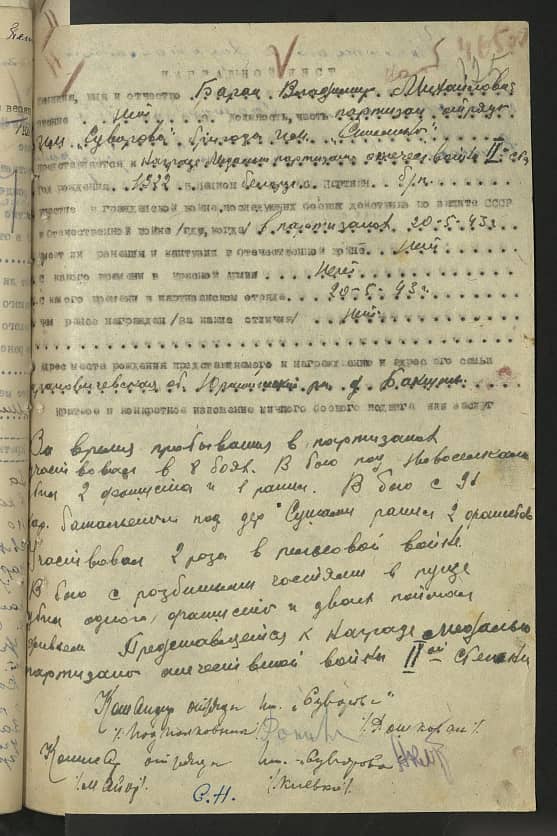 465
НАГРАДНОЙ ЛИСТ
Фамилия, имя и отчество Баран Владимир Михайлович
звание Нет должность, часть партизан отряда
им. "Суворова" бригада им.
представляется к Награде Медалью партизану отечеств. войны II ст.
Год рождения 1922 национ белорус парт. б/п
участие в гражданской войне, последующих боевых действиях по защите СССР
и Отечественной войне /где, когда/ в партизанах 20-5-43г
имеет ли ранения и контузии в Отечественной войне Нет
с какого времени в Красной Армии Нет
с какого времени в партизанском отряде 20-5-43г.
чем ранее награжден /за какие отличия/ Нет
адрес места рождения представляемого к награждению и адрес его семьи
Барановичевская об. Юратишский рн д. Бакшты
Краткое и конкретное изложение личного боевого подвига или заслуг
За время пребывания в партизанах
участвовал в 8 боях. В бою под Новоселками
убил 2 фашиста и 1 ранил. В бою с 91
батальоном под дер ранил 2 фашистов
Участвовал 2 раза в рельсовой войне.
В бою с разбитыми частями в пуще
убил одного фашиста и двоих поймал
Представляется к Награде Медалью
партизану отечественной войны II ой степени
Командир отряда им. "Суворова"
/Подполковник/ /Дашкован/
Комиссар отряда им. Суворова
/Майор/
С.Н.